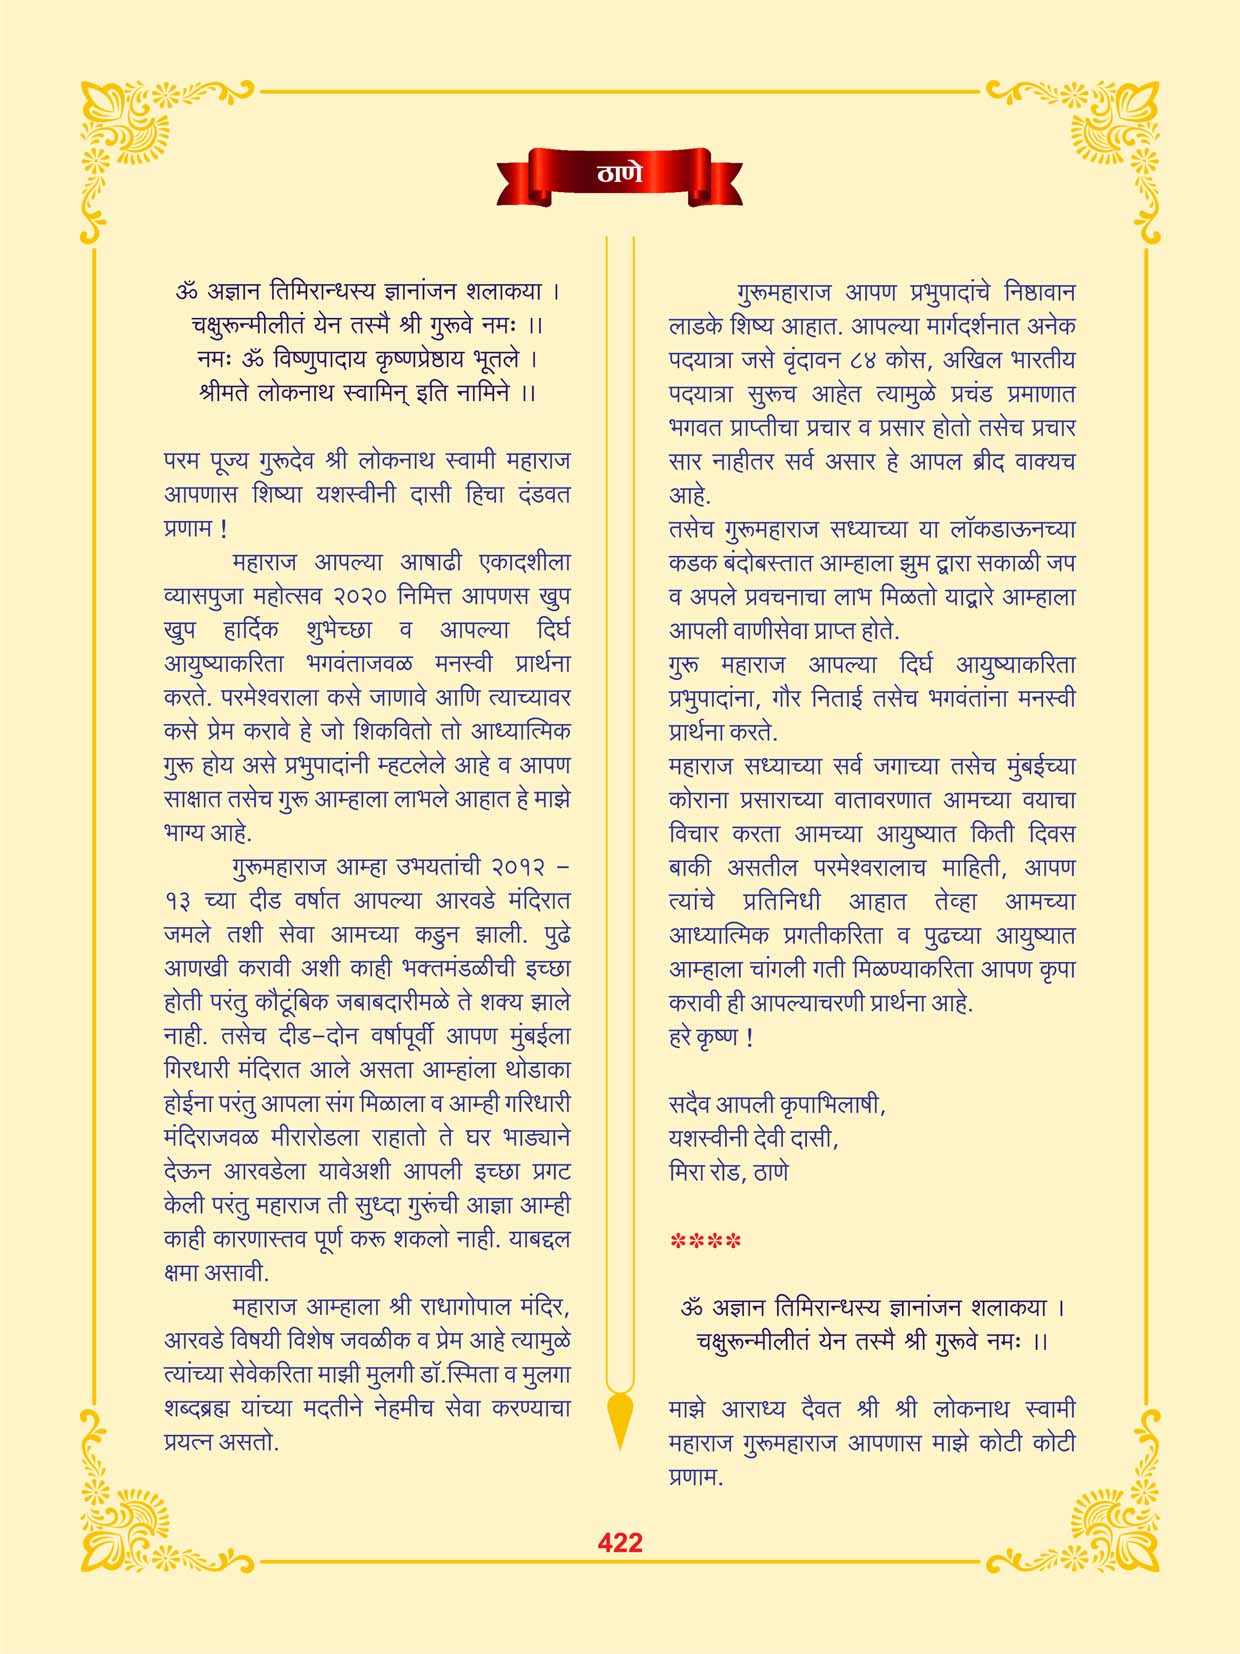 ठाणे
ॐ अज्ञान तिमिरान्धस्य ज्ञानांजन शलाकया ।
चक्षुरून्मीलीतं येन तस्मै श्री गुरूवे नमः ।।
नमः ॐ विष्णुपादाय कृष्णप्रेष्ठाय भूतले ।
श्रीमते लोकनाथ स्वामिन् इति नामिने ।।
परम पूज्य गुरूदेव श्री लोकनाथ स्वामी महाराज
आपणास शिष्या यशस्वीनी दासी हिचा दंडवत
प्रणाम !
महाराज आपल्या आषाढी एकादशीला
व्यासपुजा महोत्सव २०२० निमित्त आपणस खुप
खुप हार्दिक शुभेच्छा व आपल्या दिर्घ
आयुष्याकरिता भगवंताजवळ मनस्वी प्रार्थना
करते. परमेश्वराला कसे जाणावे आणि त्याच्यावर
कसे प्रेम करावे हे जो शिकवितो तो आध्यात्मिक
गुरू होय असे प्रभुपादांनी म्हटलेले आहे व आपण
साक्षात तसेच गुरू आम्हाला लाभले आहात हे माझे
भाग्य आहे.
गुरूमहाराज आम्हा उभयतांची २०१२ -
१३ च्या दीड वर्षात आपल्या आरवडे मंदिरात
जमले तशी सेवा आमच्या कडुन झाली. पुढे
आणखी करावी अशी काही भक्तमंडळीची इच्छा
होती परंतु कौटूंबिक जबाबदारीमळे ते शक्य झाले
नाही. तसेच दीड-दोन वर्षापूर्वी आपण मुंबईला
गिरधारी मंदिरात आले असता आम्हांला थोडाका
होईना परंतु आपला संग मिळाला व आम्ही गरिधारी
मंदिराजवळ मीरारोडला राहातो ते घर भाड्याने
देऊन आरवडेला यावेअशी आपली इच्छा प्रगट
केली परंतु महाराज ती सुध्दा गुरूंची आज्ञा आम्ही
काही कारणास्तव पूर्ण करू शकलो नाही. याबद्दल
क्षमा असावी.
महाराज आम्हाला श्री राधागोपाल मंदिर,
आरवडे विषयी विशेष जवळीक व प्रेम आहे त्यामुळे
त्यांच्या सेवेकरिता माझी मुलगी डॉ.स्मिता व मुलगा
शब्दब्रह्म यांच्या मदतीने नेहमीच सेवा करण्याचा
प्रयत्न असतो.
गुरूमहाराज आपण प्रभुपादांचे निष्ठावान
लाडके शिष्य आहात. आपल्या मार्गदर्शनात अनेक
पदयात्रा जसे वृंदावन ८४ कोस, अखिल भारतीय
पदयात्रा सुरूच आहेत त्यामुळे प्रचंड प्रमाणात
भगवत प्राप्तीचा प्रचार व प्रसार होतो तसेच प्रचार
सार नाहीतर सर्व असार हे आपल ब्रीद वाक्यच
आहे.
तसेच गुरूमहाराज सध्याच्या या लॉकडाऊनच्या
कडक बंदोबस्तात आम्हाला झुम द्वारा सकाळी जप
व अपले प्रवचनाचा लाभ मिळतो याद्वारे आम्हाला
आपली वाणीसेवा प्राप्त होते.
गुरू महाराज आपल्या दिर्घ आयुष्याकरिता
प्रभुपादांना, गौर निताई तसेच भगवंतांना मनस्वी
प्रार्थना करते.
महाराज सध्याच्या सर्व जगाच्या तसेच मुंबईच्या
कोराना प्रसाराच्या वातावरणात आमच्या वयाचा
विचार करता आमच्या आयुष्यात किती दिवस
बाकी असतील परमेश्वरालाच माहिती, आपण
त्यांचे प्रतिनिधी आहात तेव्हा आमच्या
आध्यात्मिक प्रगतीकरिता व पुढच्या आयुष्यात
आम्हाला चांगली गती मिळण्याकरिता आपण कृपा
करावी ही आपल्याचरणी प्रार्थना आहे.
हरे कृष्ण !
सदैव आपली कृपाभिलाषी,
यशस्वीनी देवी दासी,
मिरा रोड, ठाणे
****
ॐ अज्ञान तिमिरान्धस्य ज्ञानांजन शलाकया ।
चक्षुरून्मीलीतं येन तस्मै श्री गुरूवे नमः ।।
माझे आराध्य दैवत श्री श्री लोकनाथ स्वामी
महाराज गुरूमहाराज आपणास माझे कोटी कोटी
प्रणाम.
422